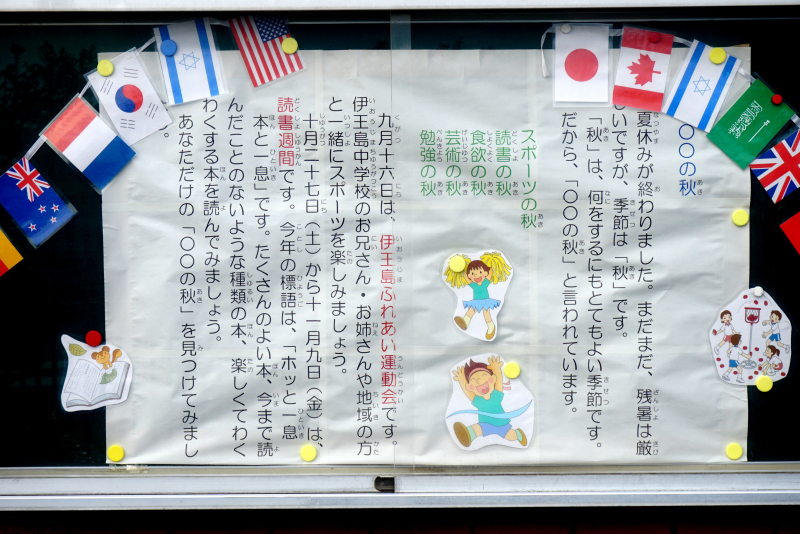 〇〇の秋
夏休みが終わりました。まだまだ、残暑は厳
しいですが、季節は「秋」です。
「秋」は、何をするにもとてもよい季節です。
だから、「〇〇の秋」と言われています。
スポーツの秋
読書の秋
食欲の秋
芸術の秋
勉強の秋
九月十六日は、伊王島ふれあい運動会です。
伊王島中学校のお兄さん・お姉さんや地域の方
と一緒にスポーツを楽しみましょう。
十月二十七日（土）から十一月九日（金）は、
読書週間です。今年の標語は、「ホッと一息
本と一息」です。たくさんのよい本、今まで読
んだことのないような種類の本、楽しくてわく
わくする本を読んでみましょう。
あなただけの「〇〇の秋」を見つけてみまし